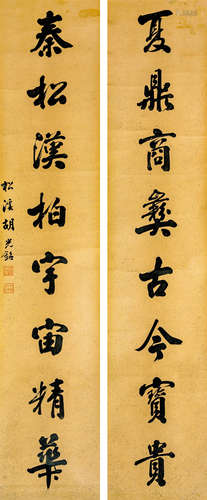 夏鼎商彝古今寶貴
秦松漢柏宇宙精華
松溪胡光銘